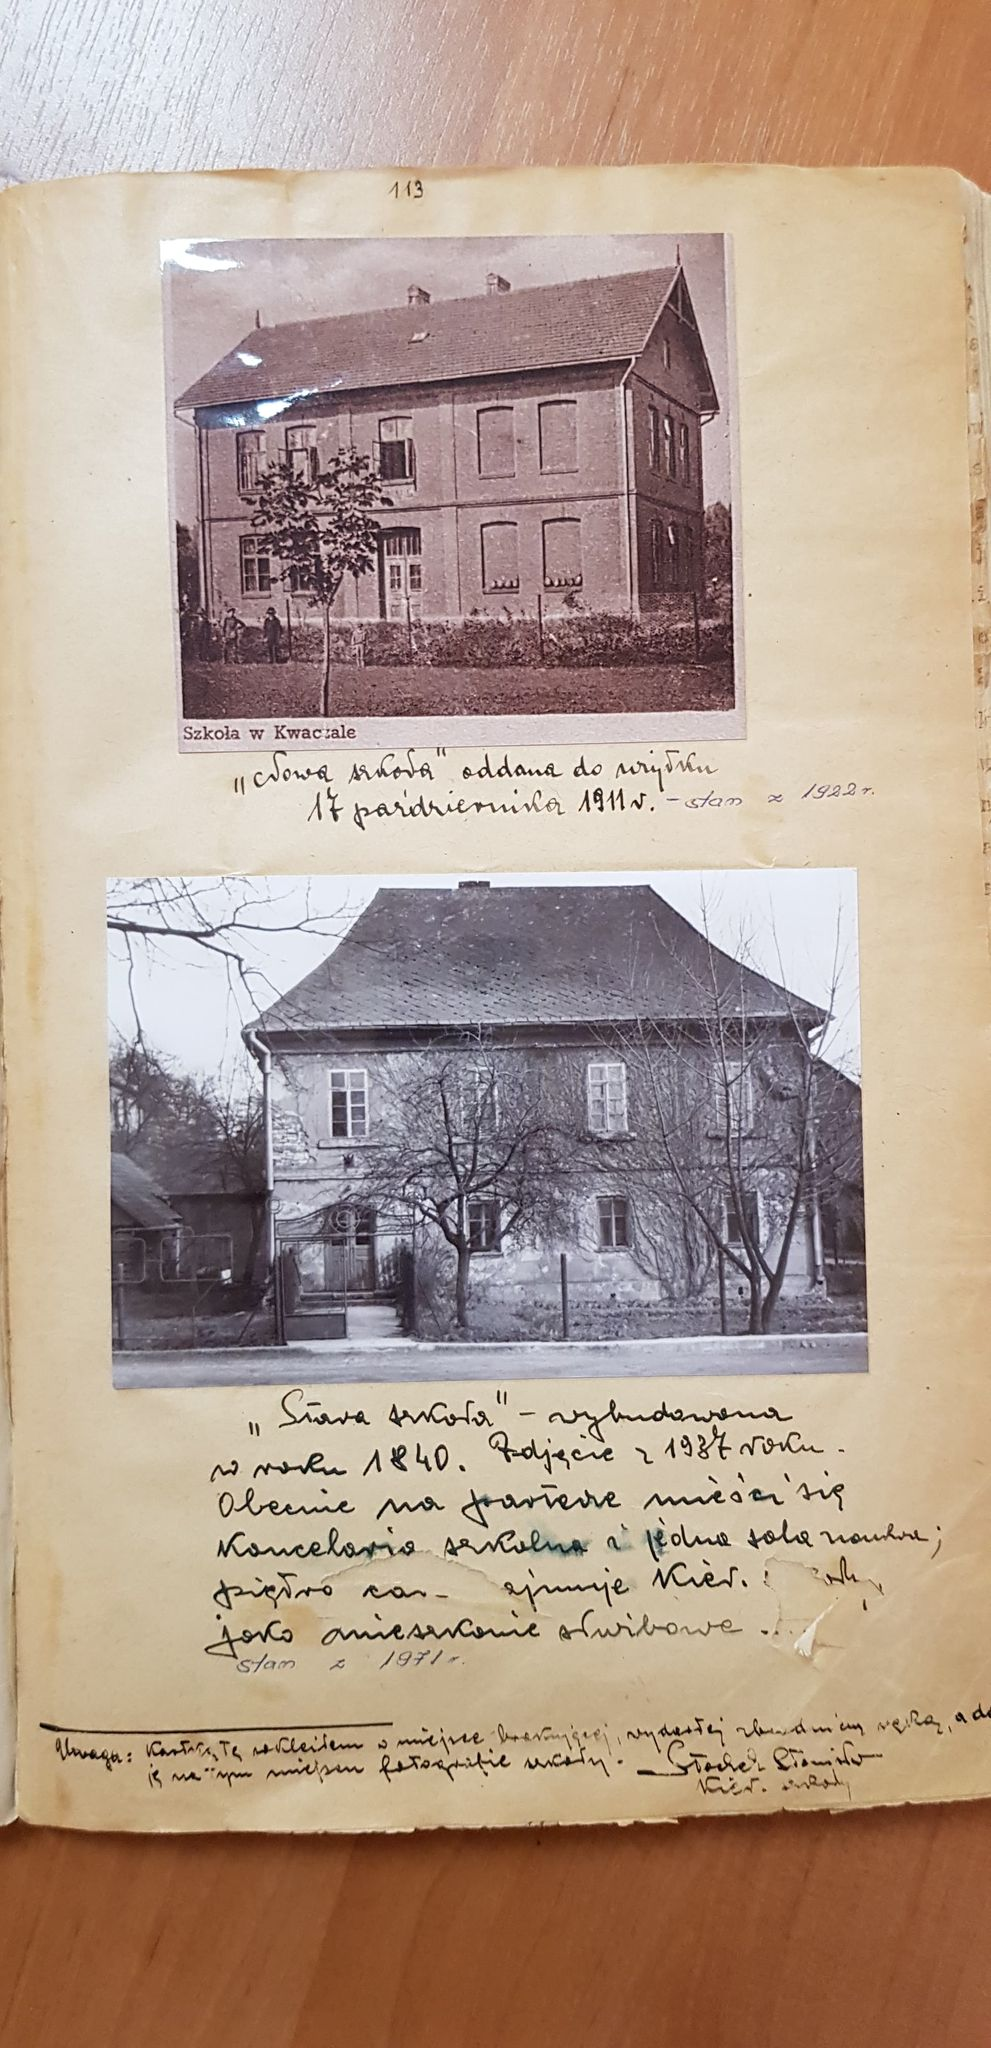 113
Szkoła w Kwaczale
„Nowa szkoła" oddana do użytku
17 października 1911 r. - stan z 1922 r.
„Stara szkoła" - wybudowana
w roku 1840. Zdjęcie z 1937 roku.
Obecnie na parterze mieści się
Kancelaria szkolna i jedna sala naukowa;
piętro ca- zajmuje Kier.
jako mieszkanie służbowe ....
stan z 1971 r.
Uwaga: Kartkę tę wkleiłem w miejsce brakującej, wydartej zbrodniczą ręką, a do
tym miejscu fotografie szkoły. Stanisław
Kier. szkoły